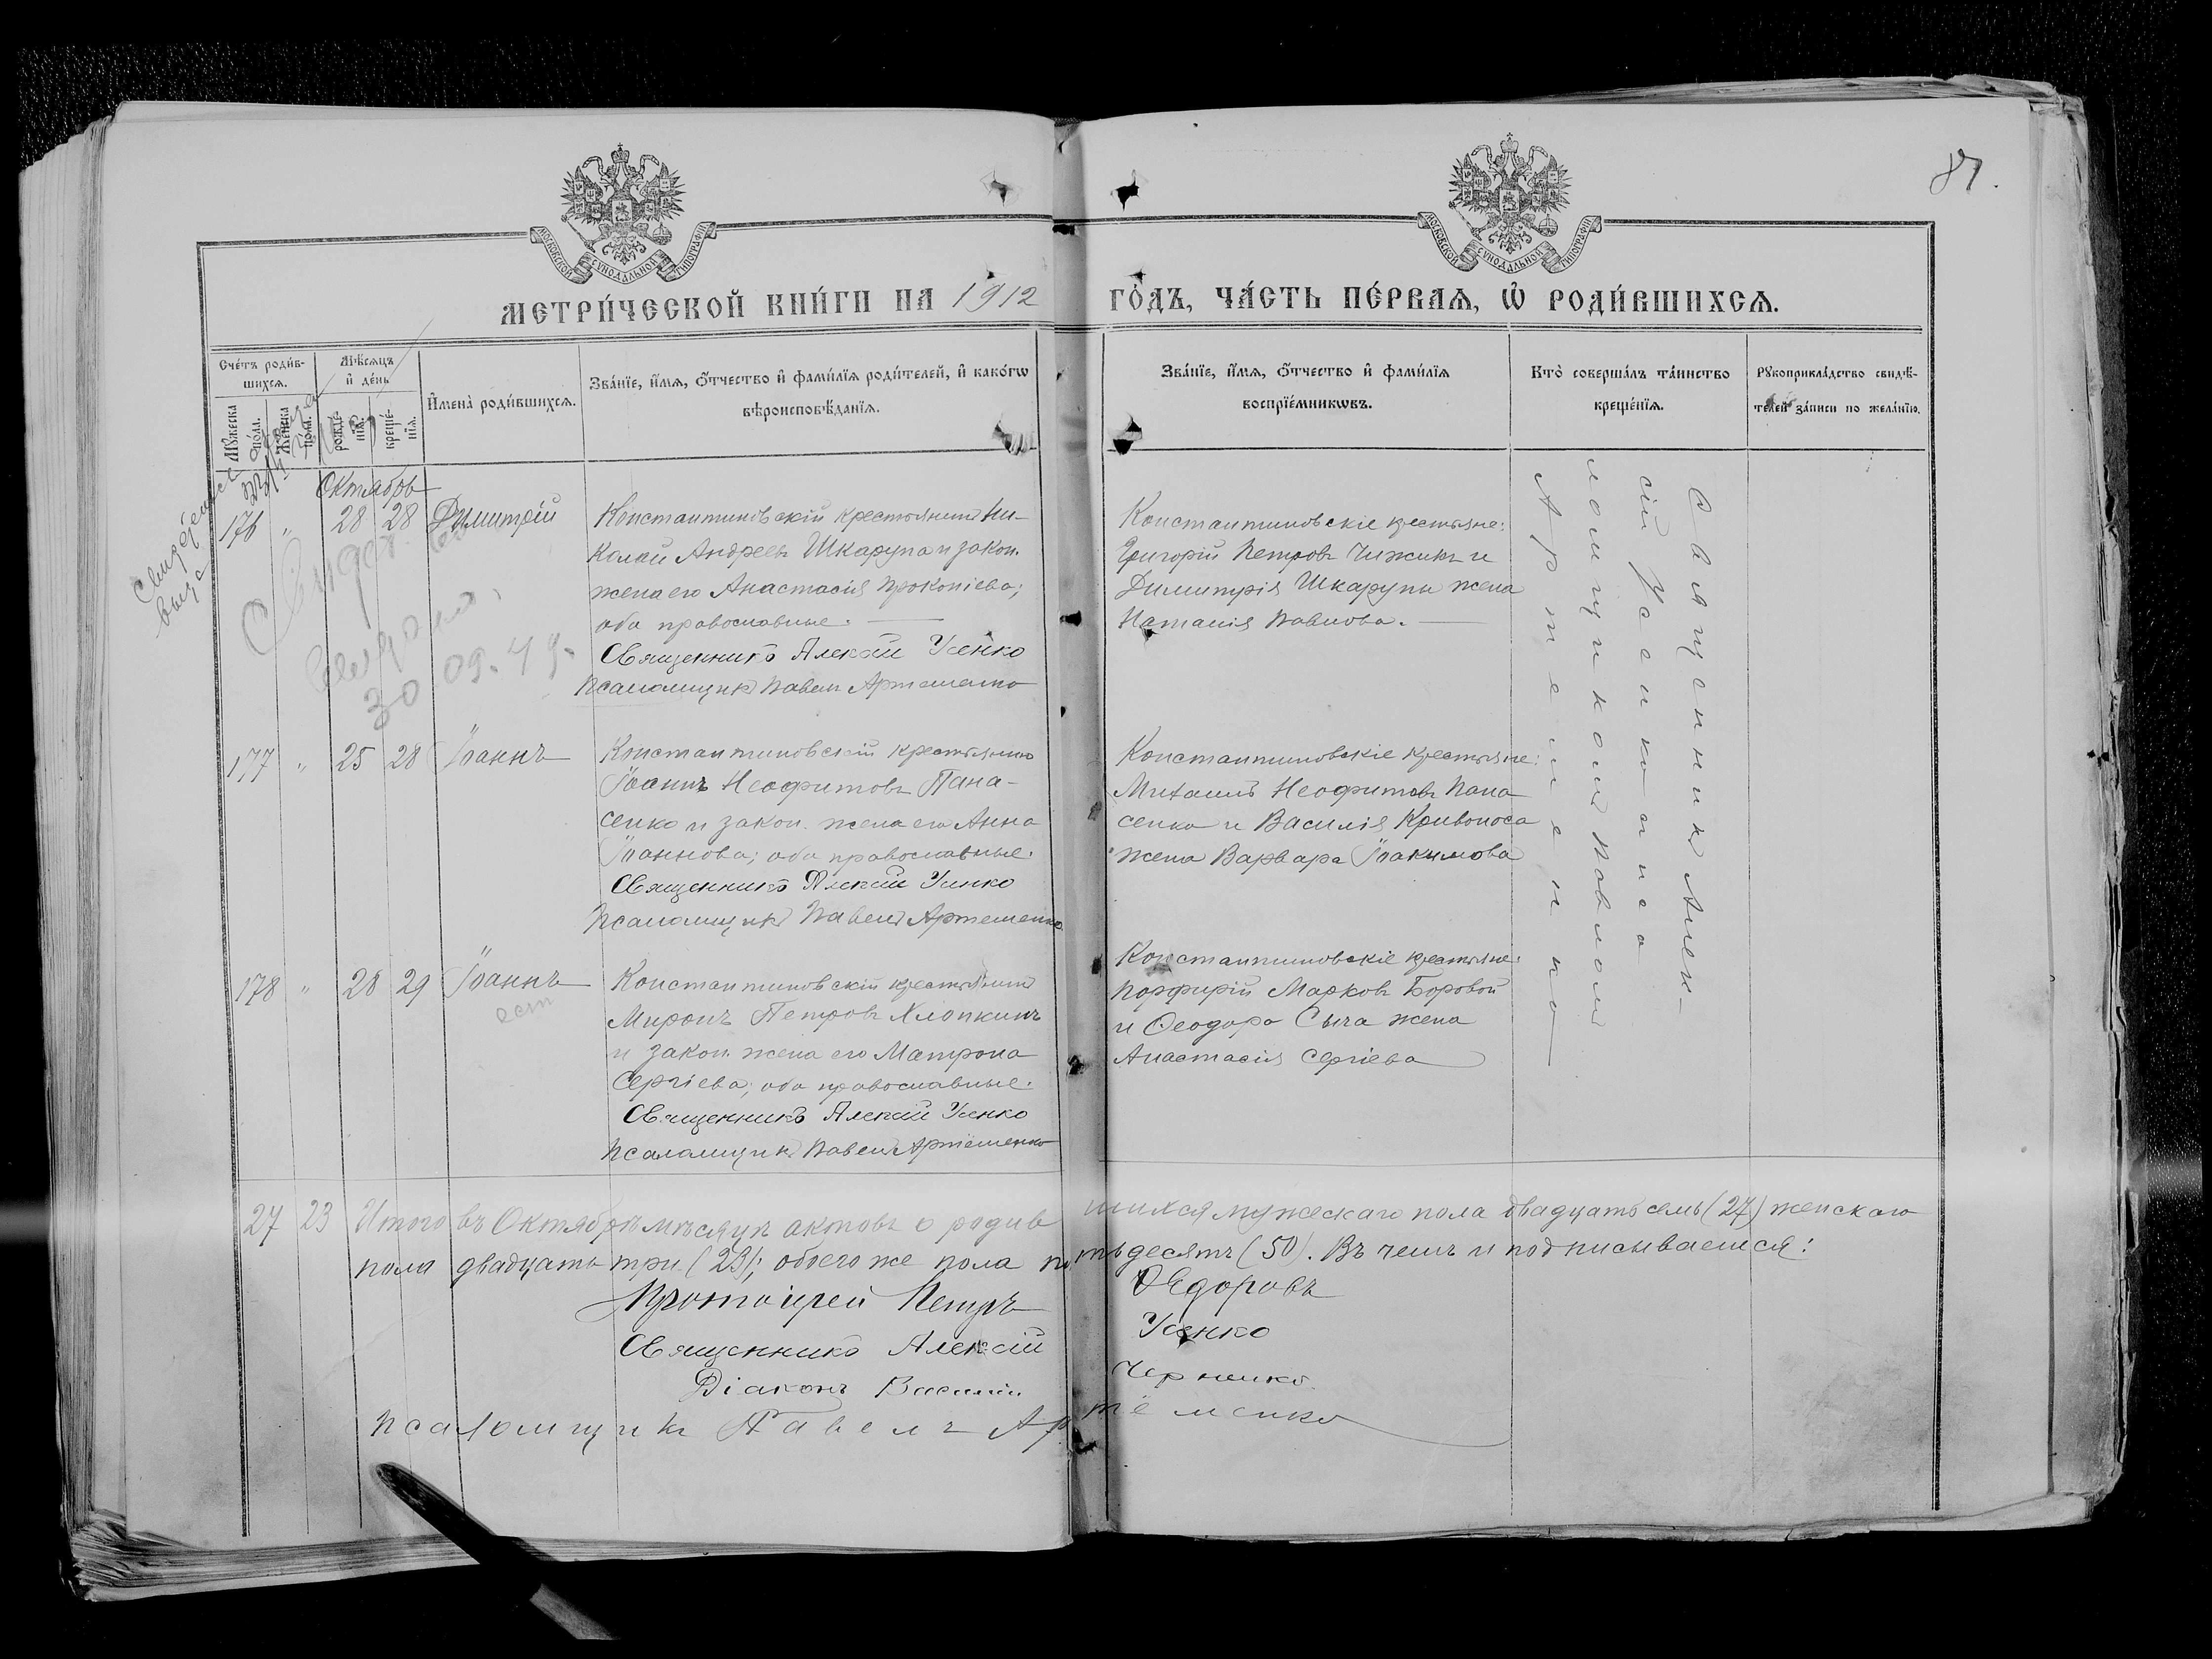 87.
МОСКОВСКОЙ СУНОДАЛЬНОЙ ТИПОГРАФІИ
МОСКОВСКОЙ СУНОДАЛЬНОЙ ТИПОГРАФІИ
МЕТРИ́ЧЕСКОЙ КНИ́ГИ НА 1912 ГО́ДЪ, ЧА́СТЬ ПЕ́РВАѦ, Ѡ҆ РОДИ́ВШИХСѦ.
Сче́тъ роди́в-
шихсѧ.
Мꙋ́жеска по́ла.
Же́нска по́ла.
Мѣ́сѧцъ
и҆ де́нь
рожде́-
нїѧ.
креще́-
нїѧ.
И҆мена̀ роди́вшихсѧ.
Зва́нїе, и҆́мѧ, ѻ҆́тчество и҆ фами́лїѧ роди́телей, и҆ како́гѡ
вѣроисповѣ́данїѧ.
Зва́нїе, и҆́мѧ, ѻ҆́тчество и҆ фами́лїѧ
воспрїе́мникѡвъ.
Кто̀ соверша́лъ та́инство
креще́нїѧ.
Рꙋкоприкла́дство свидѣ́-
телей за́писи по жела́нїю.
Октябрь
176 " 28 28 Димитрій
Константиновскій крестьянинъ Ни-
колай Андреевъ Шкарупа и закон.
жена его Анастасія Прокопіева;
оба православные.
Священникъ Алексій Усенко
Псаломщикъ Павелъ Артеменко
Константиновскіе крестьяне:
Григорій Петровъ Чижикъ и
Димитрія Шкарупы жена
Наталія Павлова.
Священник Алек
сій Усенко с пса
ломщиком Павлом
Артеменко
30 09. 49.
177 " 25 28 Іоаннъ
Константиновскій крестьянинъ
Іоаннъ Неофитовъ Пана-
сенко и закон. жена его Анна
Іоаннова; оба православные.
Священникъ Алексій Усенко
Псаломщикъ Павелъ Артеменко
Константиновскіе крестьяне:
Михаилъ Неофитовъ Пана
сенко и Василія Кривоноса
жена Варвара Іоакимова
178 " 28 29 Іоаннъ
ест
Константиновскій крестьянинъ
Миронъ Петровъ Хлопкинъ
и закон. жена его Матрона
Сергіева; оба православные.
Священникъ Алексій Усенко
Псаломщикъ Павелъ Артеменко
Константиновскіе крестьяне:
Порфирій Марковъ Боровой
и Ѳеодора Сыча жена
Анастасія Сергіева
27 23 Итого въ Октябрѣ мѣсяцѣ актовъ о родившихся мужескаго пола двадцать семь (27) женскаго
пола двадцать три (23); обоего же пола пятьдесятъ (50). Въ чемъ и подписываемся:
Протоіерей Петръ Ѳедоровъ
Священникъ Алексій Усенко
Діаконъ Василій Черненко
Псаломщикъ Павелъ Артёменко